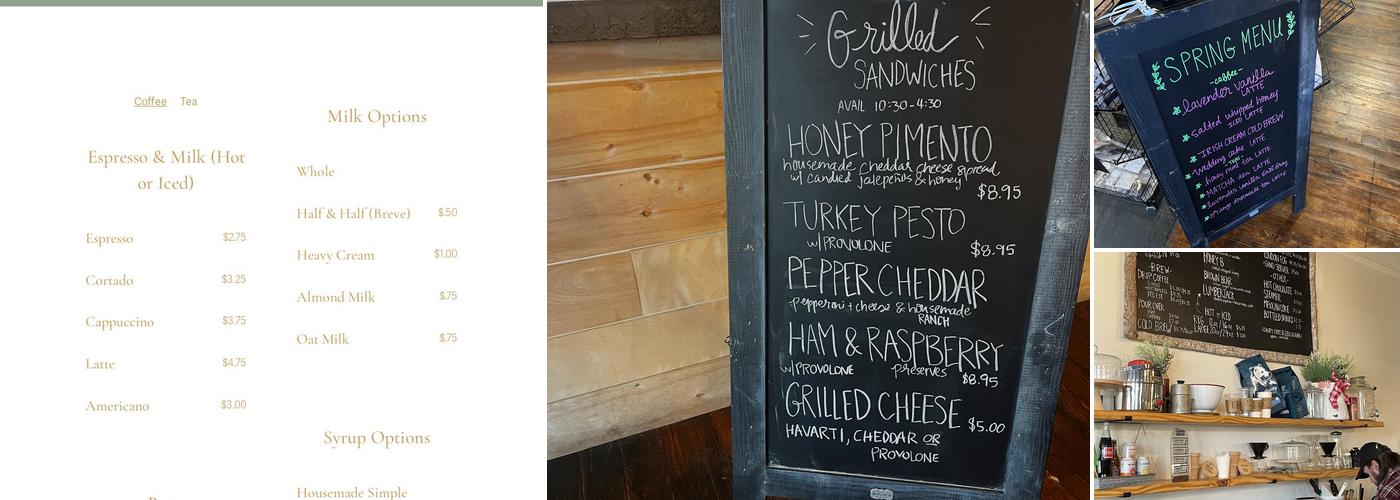 Coffee Tea
Espresso & Milk (Hot
or Iced)
Espresso $2.75
Cortado $3.25
Cappuccino $3.75
Latte $4.75
Americano $3.00
Milk Options
Whole
Half & Half (Breve) $.50
Heavy Cream $1.00
Almond Milk $.75
Oat Milk $.75
Syrup Options
Housemade Simple
Grilled
SANDWICHES
AVAIL 10:30-4:30
HONEY PIMENTO
housemade cheddar cheese spread
w/ candied jalepeños & honey
$8.95
TURKEY PESTO
w/PROVOLONE $8.95
PEPPER CHEDDAR
pepperoni + cheese & housemade
RANCH
HAM & RASPBERRY
w/PROVOLONE preserves $8.95
GRILLED CHEESE $5.00
HAVARTI, CHEDDAR OR
PROVOLONE
SPRING MENU
-coffee-
lavender vanilla
LATTE
salted whipped honey
ICED LATTE
IRISH CREAM COLD BREW
wedding cake LATTE
-TEA-
honey mint tea LATTE
MATCHA tea LATTE
lavender vanilla earl grey
orange tea LATTE
-BREW-
DRIP COFFEE
POUR OVER
COLD BREW
HONEY B
BROWN BEAR
LUMBERJACK
HOT or ICED
LONDON FOG
-OTHER-
HOT CHOCOLATE
STEAMER
MEXICAN COKE
BOTTLED DRINKS